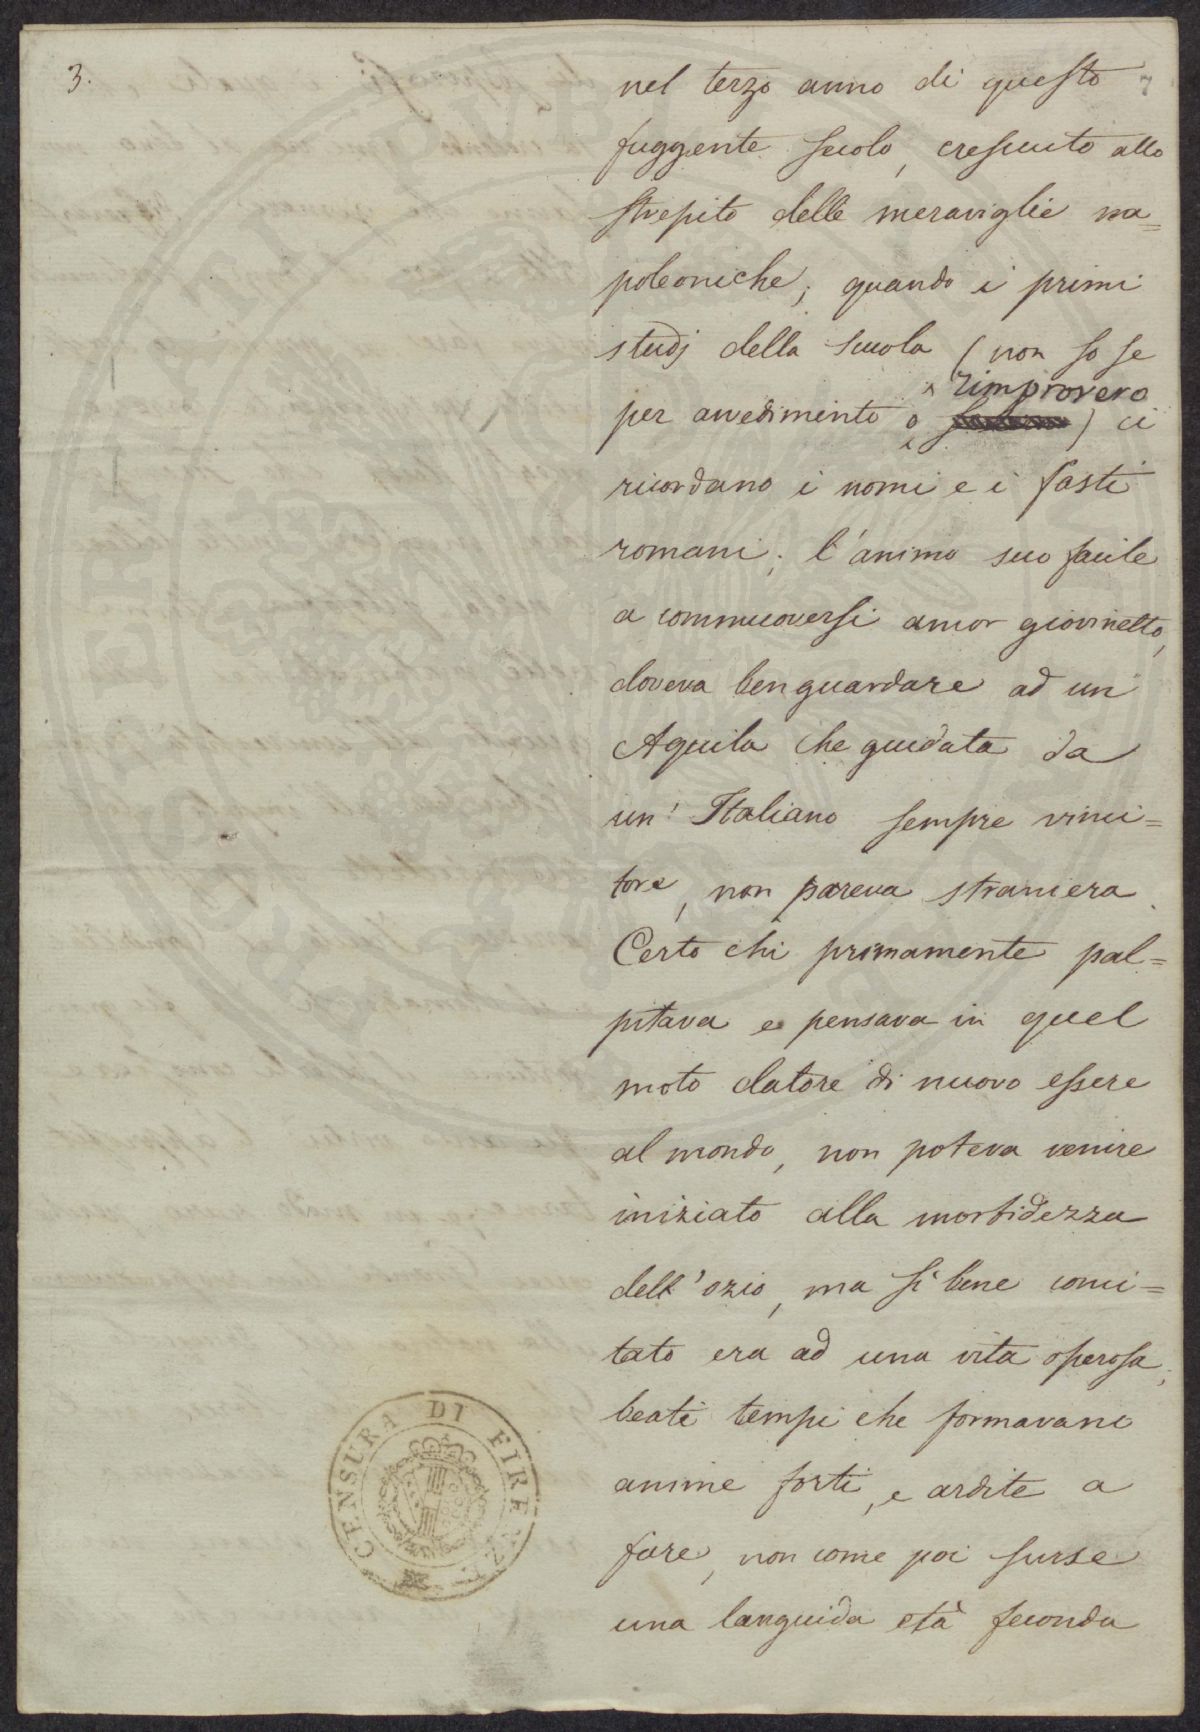 3.
7
nel terzo anno di questo
fuggente secolo, cresciuto allo
strepito delle meraviglie na=
poleoniche; quando i primi
studj della scuola (non so se
rimprovero
per avvedimento o ) ci
ricordano i nomi e i fasti
romani; l'animo suo facile
a commuoversi amor giovinetto,
doveva ben guardare ad un'
Aquila che guidata da
un' Italiano sempre vinci=
tore, non pareva straniera.
Certo chi primamente pal=
pitava e pensava in quel
moto datore di nuovo essere
al mondo, non poteva venire
iniziato alla morbidezza
dell'ozio, ma si bene conci=
tato era ad una vita operosa;
beati tempi che formavano
anime forti, e ardite a
fare, non come poi surse
una languida età feconda
CENSURA DI FIRENZE